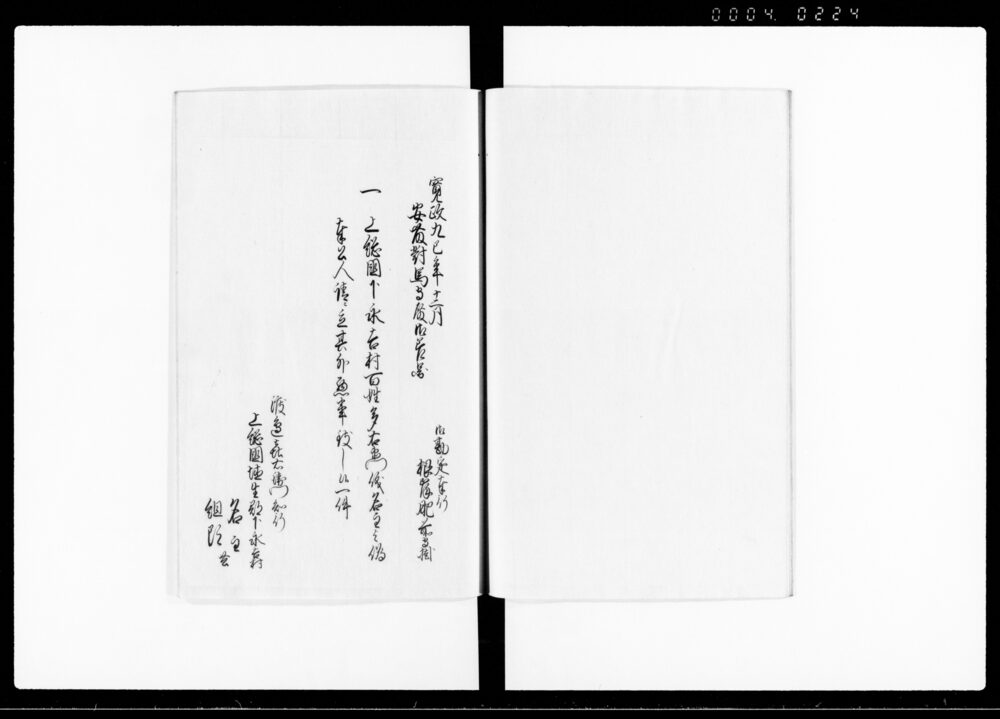 0004. 0224
寛政九巳年十二月
安藤對馬守殿御差圖
御勘定奉行
根岸肥前守掛
一 上総國下永吉村百姓多右衛門儀名主之偽
奉公人請ニ立其外悪事致し候一件
渡邉喜右衛門知行
上総國埴生郡下永吉村
名主
組頭共